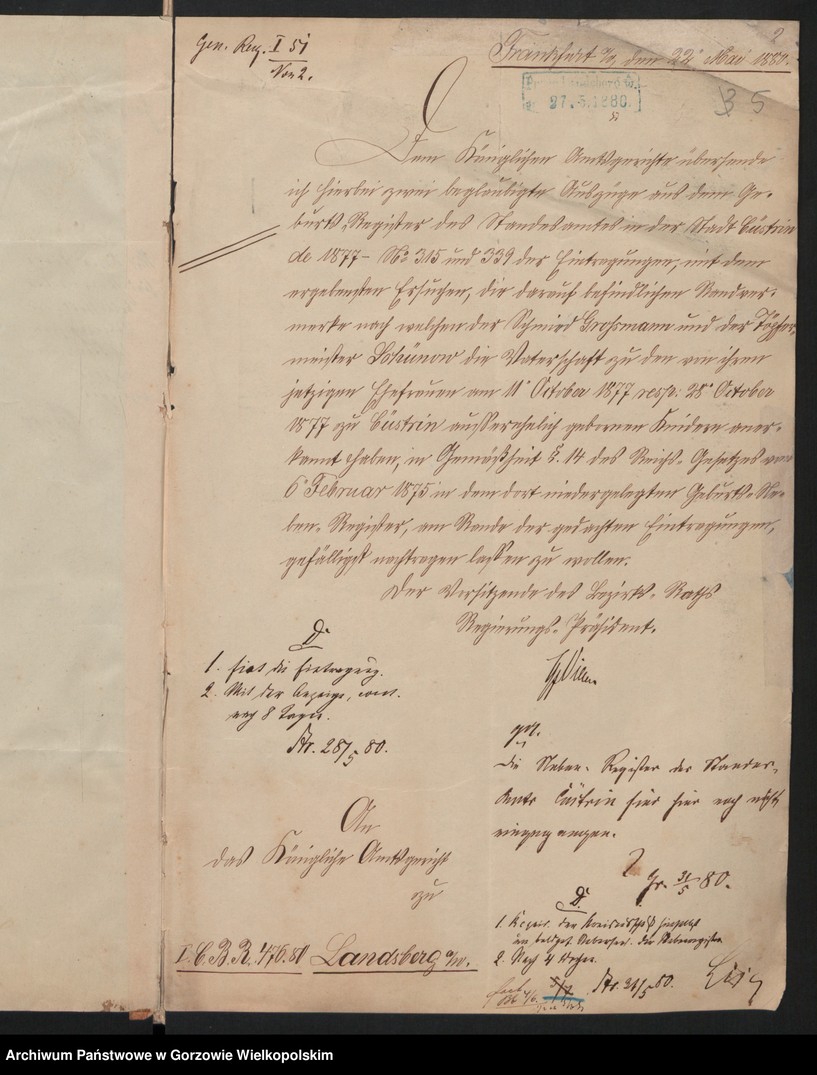 Gen. Reg. I 51
Vor 2.
2
Frankfurt a/O, den 22t Mai 1880.
27.5.1880.
35
Dem Königlichen Amtsgerichte übersende
ich hierbei zwei beglaubigte Auszüge aus dem Ge-
burts-Register des Standesamtes in der Stadt Cüstrin
de 1877 – No 315 und 339 der Eintragungen, mit dem
ergebensten Ersuchen, die darauf befindlichen Randver-
merke nach welchen der Schmied Grossmann und der Töpfer-
meister die Vaterschaft zu den von ihren
jetzigen Ehefrauen am 11t October 1877 resp: 28t October
1877 zu Cüstrin ausserehelich gebornen Kindern aner-
kannt haben, in Gemäßheit §. 14 des Reichs-Gesetzes vom
6t Februar 1875 in dem dort niedergelegten Geburts-Ne-
ben-Register, am Rande der gedachten Eintragungen,
gefälligst nachtragen lassen zu wollen.
Der Vorsitzende des Bezirks-Raths
Regierungs-Präsident.
D.
1. fiat die Eintragung.
2. Mit der Anzeige,
nach 8 Tagen.
28/5 80.
Die Neben-Register des Standes-
Amts Cüstrin sind hier noch nicht
eingegangen.
31/5 80.
An
das Königliche Amtsgericht
zu
I. C. B. R. 476.80 Landsberg a/W.
D.
1.
2. Nach 4 Wochen.
31/5 80.
Archiwum Państwowe w Gorzowie Wielkopolskim